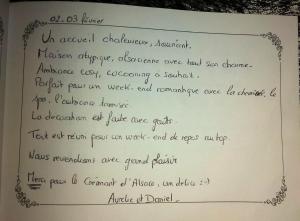 02.03 février
Un accueil chaleureux, souriant.
Maison atypique, alsacienne avec tout son charme.
Ambiance cosy, cocooning a souhait.
Parfait pour un week-end romantique avec la cheminée, le
spa, l'ambiance tamisée.
La décoration est faite avec goûts.
Tout est réuni pour un week-end de repos au top.
Nous reviendrons avec grand plaisir
Merci pour le Crémant d'Alsace, un délice :-)
Aurélie et Daniel.